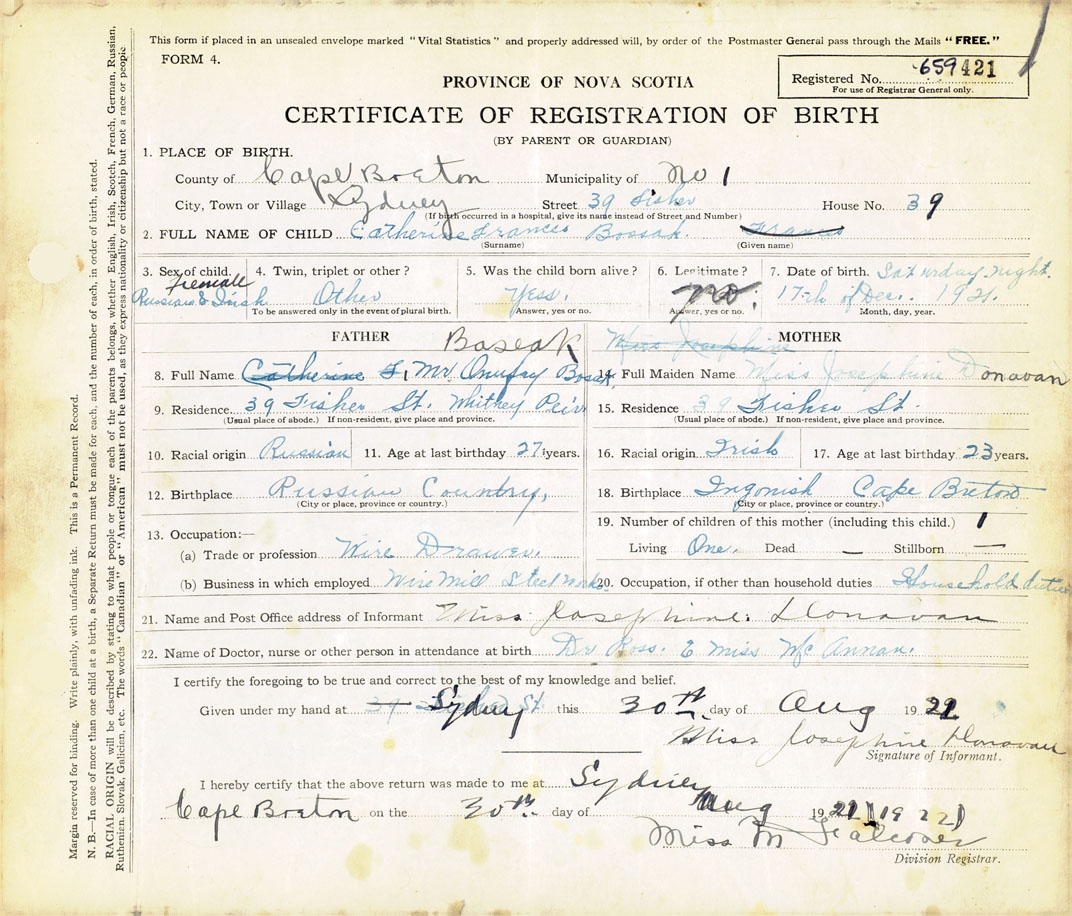 This form if placed in an unsealed envelope marked "Vital Statistics" and properly addressed will, by order of the Postmaster General pass through the Mails "FREE."
FORM 4.
Registered No. 659421
For use of Registrar General only.
PROVINCE OF NOVA SCOTIA
CERTIFICATE OF REGISTRATION OF BIRTH
(BY PARENT OR GUARDIAN)
1. PLACE OF BIRTH.
County of Cape Breton Municipality of No 1
City, Town or Village Sydney Street 39 Fisher House No. 39
(If birth occurred in a hospital, give its name instead of Street and Number)
2. FULL NAME OF CHILD Catherine Frances Bossak.
(Surname) (Given name)
3. Sex of child. 4. Twin, triplet or other? 5. Was the child born alive? 6. Legitimate? 7. Date of birth. Saturday night.
Female
Russian & Irish Other Yess. No. 17th of Dec. 1921.
To be answered only in the event of plural birth. Answer, yes or no. Answer, yes or no. Month, day, year.
FATHER Baseak Miss Josephine MOTHER
8. Full Name Catherine F, Mr Onufry Bosak. 14. Full Maiden Name Miss Josephine Donavan
9. Residence 39 Fisher St. Whitney Peir 15. Residence 39 Fisher St.
(Usual place of abode.) If non-resident, give place and province. (Usual place of abode.) If non-resident, give place and province.
10. Racial origin Russian 11. Age at last birthday 27 years. 16. Racial origin Irish 17. Age at last birthday 23 years.
12. Birthplace Russian Country, 18. Birthplace Ingonish Cape Breton
(City or place, province or country.) (City or place, province or country.)
13. Occupation:— 19. Number of children of this mother (including this child.) 1
(a) Trade or profession Wire Drawer. Living One. Dead — Stillborn —
(b) Business in which employed Wire Mill Steel Works. 20. Occupation, if other than household duties Household duties
21. Name and Post Office address of Informant Miss Josephine. Donavan
22. Name of Doctor, nurse or other person in attendance at birth Dr Ross. & Miss McAnnan.
I certify the foregoing to be true and correct to the best of my knowledge and belief.
Given under my hand at Sydney this 30th day of Aug 1922
Miss Josephine Donavan
Signature of Informant.
I hereby certify that the above return was made to me at Sydney
Cape Breton on the 30th day of Aug 1921 (1922)
Miss M Falconer
Division Registrar.
Margin reserved for binding. Write plainly, with unfading ink. This is a Permanent Record.
N. B.—In case of more than one child at a birth, a Separate Return must be made for each, and the number of each, in order of birth, stated.
RACIAL ORIGIN will be described by stating to what people or tongue each of the parents belongs, whether English, Irish, Scotch, French, German, Russian, Ruthenian, Slovak, Galician, etc. The words "Canadian" or "American" must not be used, as they express nationality or citizenship but not a race or people